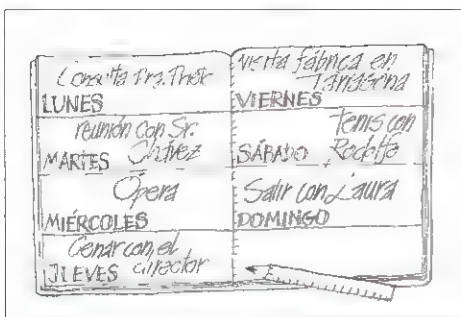 Consulta Dra.
LUNES
reunión con Sr.
Chávez
MARTES
Ópera
MIÉRCOLES
Cenar con el
director
JUEVES
visita fábrica en
Tarragona
VIERNES
Tenis con
Rodolfo
SÁBADO
Salir con Laura
DOMINGO